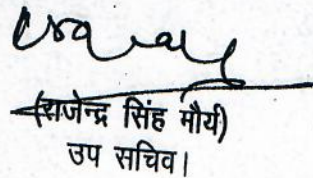 (राजेन्द्र सिंह मौर्य)
उप सचिव।